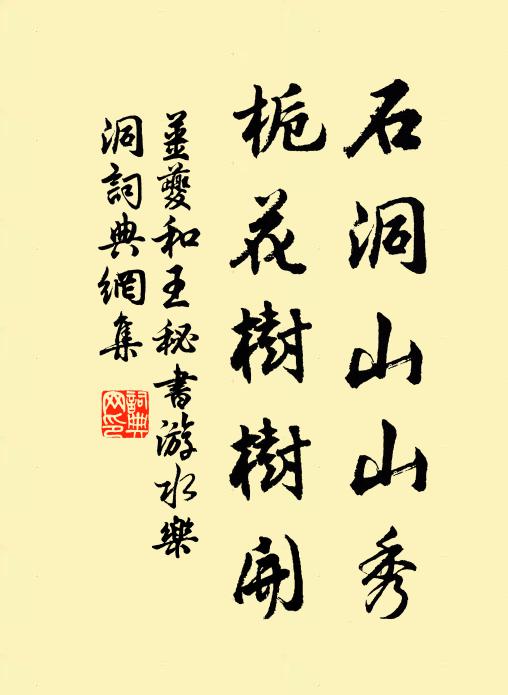 石洞山山秀
栀花樹樹開
姜夔和王秘書游水樂
洞詞典網集
詞典
网印